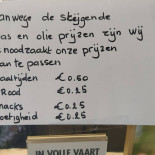 anwege de stijgende
as en olie prijzen zijn wij
noodzaakt onze prijzen
an te passen
aaltijden €0.50
Rood €0.25
nacks €0.25
oetigheid €0.25
IN VOLLE VAART